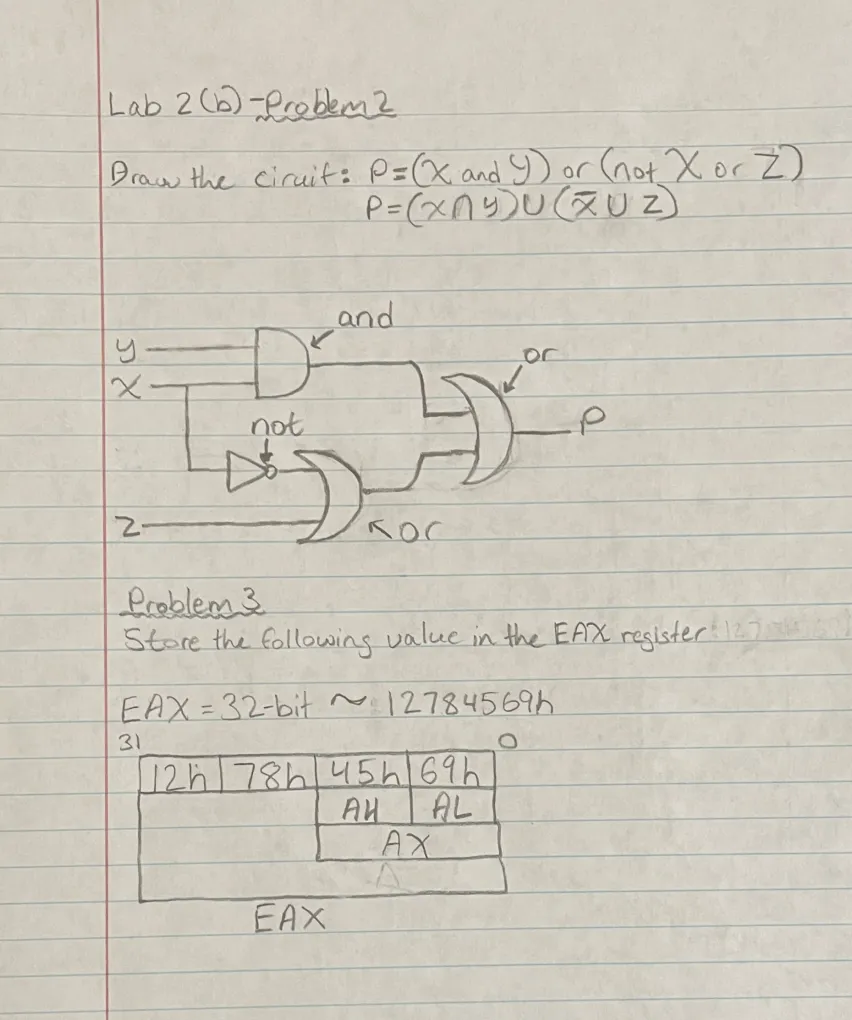 Lab 2(b)-Problem 2
Draw the ciruit: P=(X and Y) or (not X or Z)
P=(X∩Y)∪(X̄∪Z)
and
y
or
X
P
not
Z
or
Problem 3
Store the following value in the EAX register:
EAX = 32-bit ~ 12784569h
31 0
12h 78h 45h 69h
AH AL
AX
A
EAX